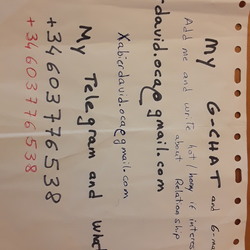 My G-CHAT and G-ma
Add me and write hot/horny if interes
about Relationship
david.ocap@gmail.com
Xabierdavid.oca@gmail.com
My Telegram and What
+34603776538
+34603776538